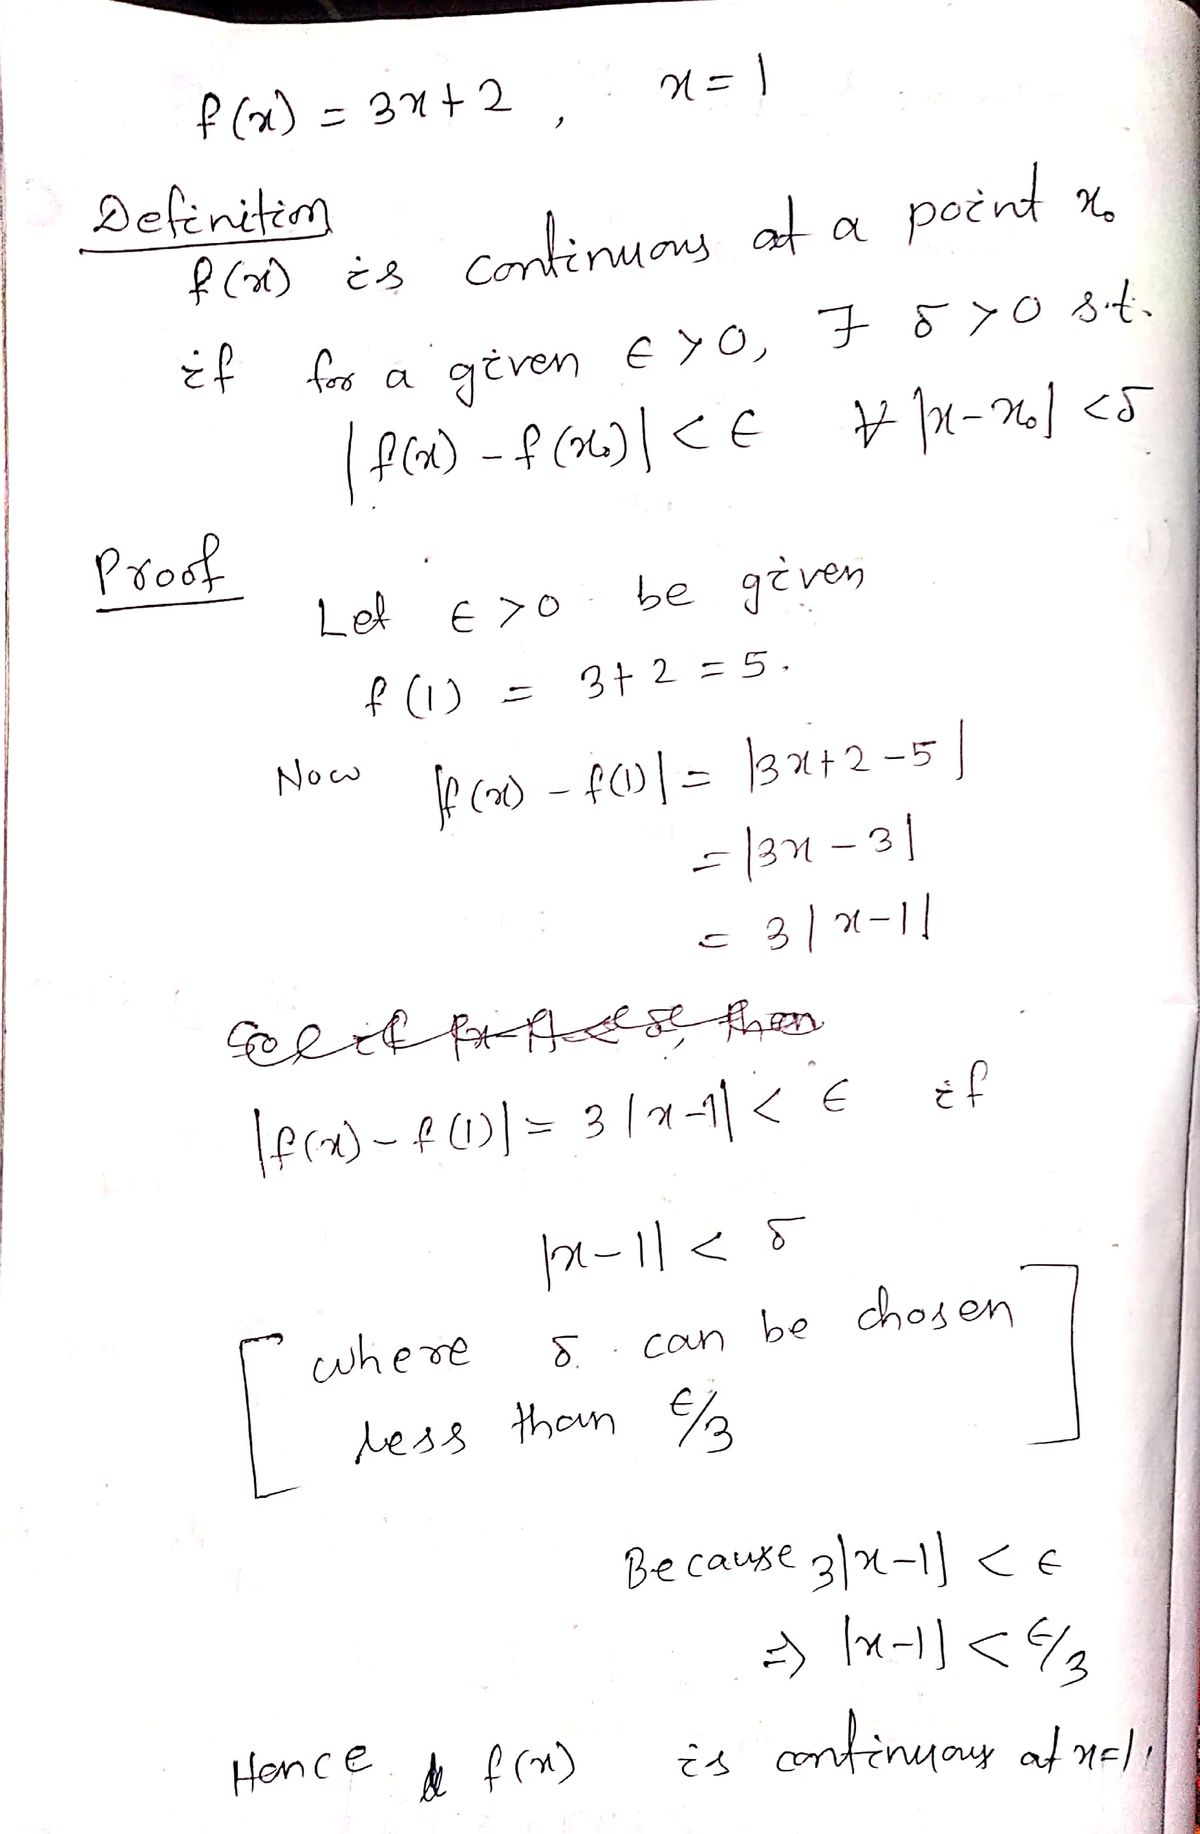 f(x) = 3x + 2 , x = 1
Definition
f(x) is continuous at a point x₀
if for a given ϵ > 0, ∃ δ > 0 s.t.
|f(x) - f(x₀)| < ϵ ∀ |x - x₀| < δ
Proof
Let ϵ > 0 be given
f(1) = 3 + 2 = 5.
Now |f(x) - f(1)| = |3x + 2 - 5|
= |3x - 3|
= 3|x - 1|
|f(x) - f(1)| = 3|x - 1| < ϵ if
|x - 1| < δ
[where δ can be chosen
less than ϵ/3]
Because 3|x - 1| < ϵ
⇒ |x - 1| < ϵ/3
Hence f(x) is continuous at x = 1.